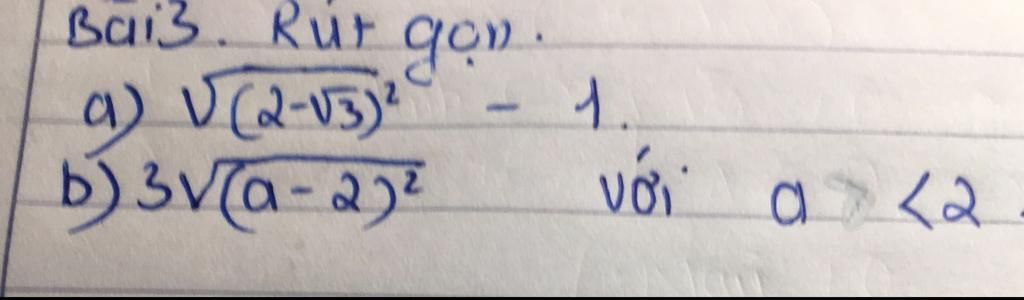 Bài 3. Rút gọn.
a) √(2-√3)² - 1.
b) 3√(a-2)² với a < 2.